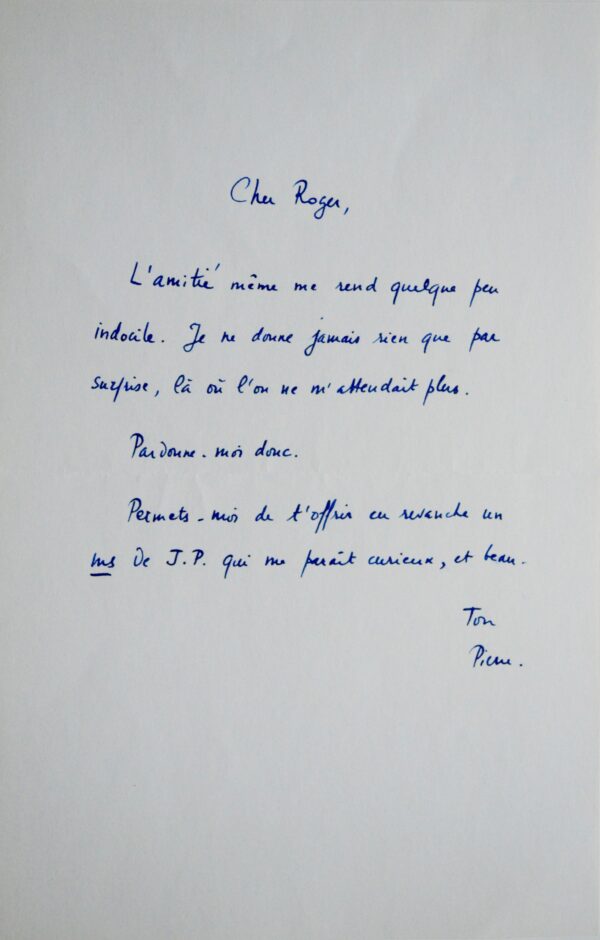 Cher Roger,
L'amitié même me rend quelque peu
indocile. Je ne donne jamais rien que par
surprise, là où l'on ne m'attendait plus.
Pardonne-moi donc.
Permets-moi de t'offrir en revanche un
ms de J.P. qui me paraît curieux, et beau.
Ton
Pierre.